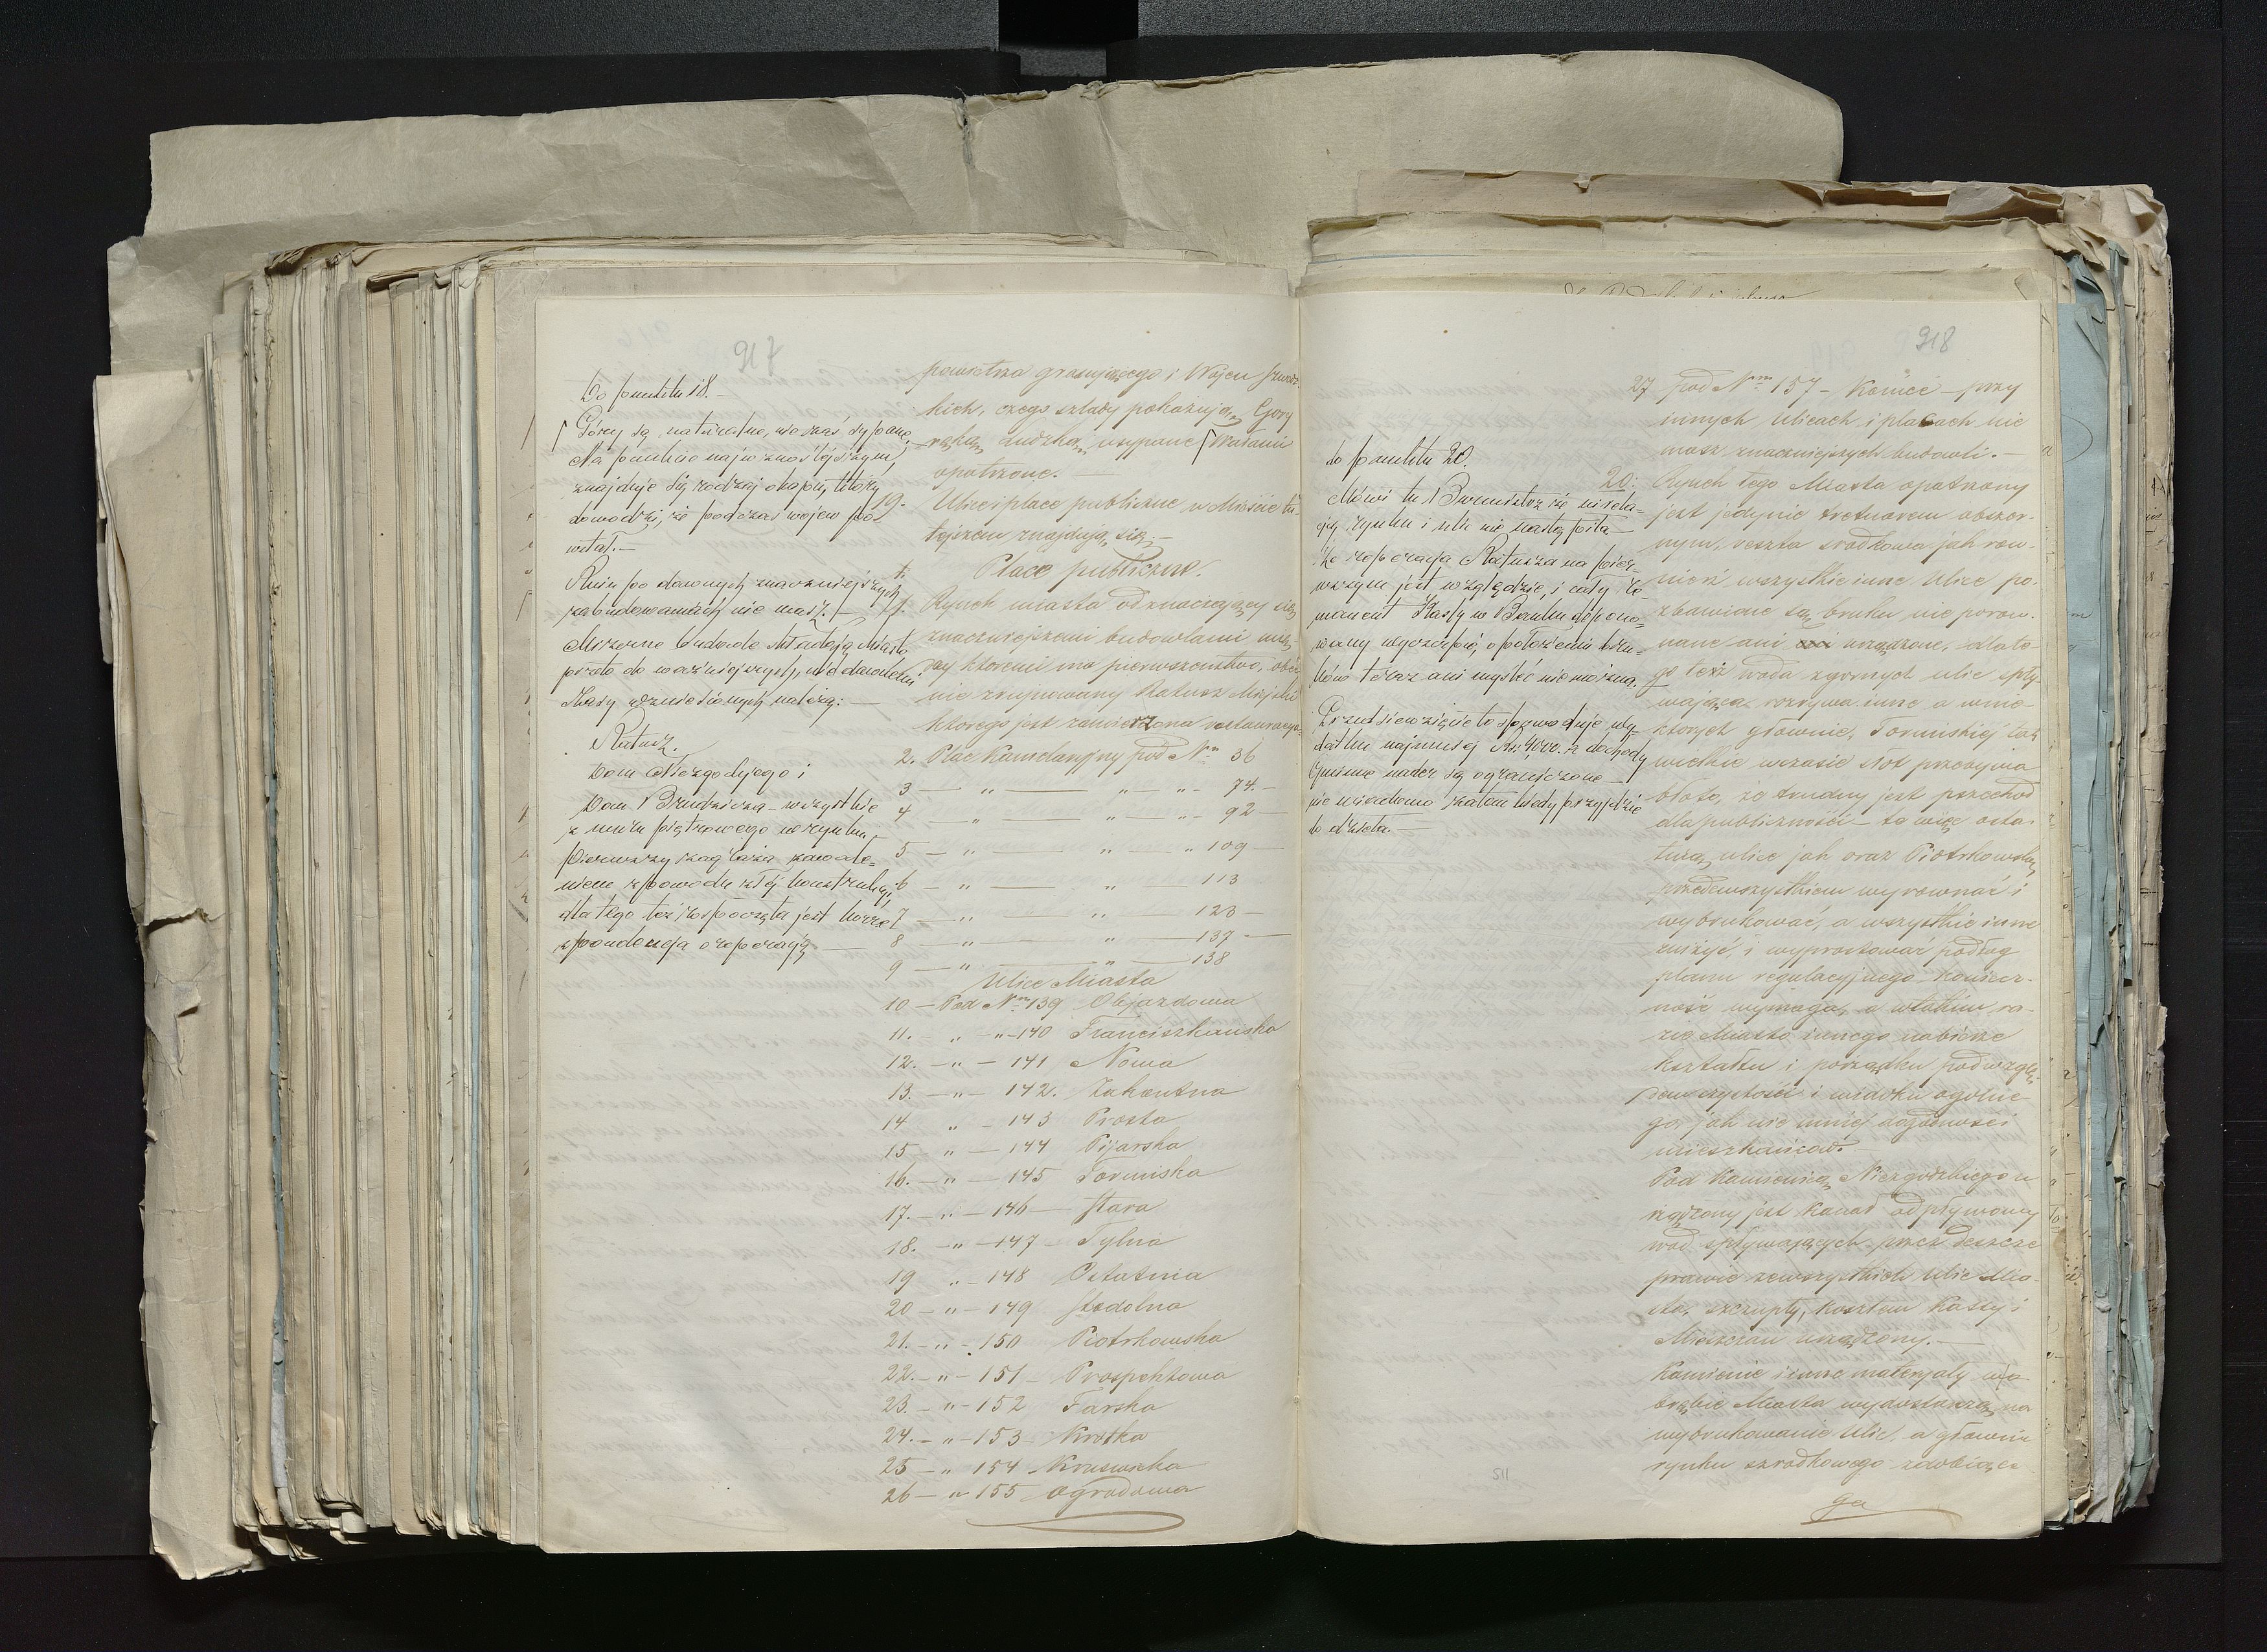 917
Do punktu 18.
Góry są naturalne, nie zaś sypane,
Na punkcie najwznioślejszym,
znajduje się rodzaj okopu, który
dowodzi, że podczas wojen po=
wstał.
Ruin po dawnych znaczniejszych
zabudowaniach nie masz.
Mizerne budowle składają Miasto
przeto do ważniejszych, nie dawnemi
czasy wzniesionych należą:
Ratusz.
Dom Niezgodzjego i
Dom Brudzicza wszystkie
z muru piętrowego w rynku,
Pierwszy zagraża zawale=
niem z powodu złej konstrukcyi,
dla tego też rozpoczęta jest korre=
spondencja o reperacją
powietrza grasującego i Wojen Szwedz-
kich, czego szlady pokazują Gory
ręką Ludzką usypane Wałami
opatrzone.
19. Ulice i place publiczne w Mieście tu-
tejszem znajdują się:
Place publiczne.
1. Rynek miasta odznaczający się
znaczniejszemi budowlami mię-
dzy ktoremi ma pierwszenstwo, obec
nie zrujnowany Ratusz Miejski
ktorego jest zamierzona restauracya
2. Plac Kamelaryjny pod Nm 36
3 — " — " — " - 74. -
4 — " — " — " - 92 —
5 — " — " — " 109 —
6 — " — " — 113
7 — " — " — 123 —
8 — " — " — 137 —
9 — " — " — 138
Ulice Miasta
10 — Pod Nm 139 Objazdowa
11. - " - " - 140 Franciszkańska
12. - " - 141 Nowa
13. - " - 142. Zakontna
14 " - 143 Prosta
15 - " - 144 Pijarska
16. - " - 145 Torunska
17. - " - 146 — Stara
18. - " - 147 - Tylna
19 " - 148 Ostatnia
20 - " - 149 Stodolna
21. - " - 150 Piotrkowska
22. - " - 151 - Prospektowa
23. - " - 152 Farska
24. - " - 153 - Krotka
25 - " 154 - Kruswicka
26 - " 155 Ogrodowa
918
do punktu 20.
Mówi tu Burmistrz że niwela=
cja rynku i ulic nie nastąpiła
Że reperacja Ratusza na pier=
wszym jest względzie, i cały Re=
manent Kassy w Banku depono=
wany wyczerpie, o położeniu bru=
ków teraz ani myśleć nie można.
Przedsiewzięcie to spowoduje wy=
datku najmniej Rs. 4000. a dochody
Gminne nader są ograniczone
nie wiadomo zatem kiedy przyjdzie
do skutku.
27 pod Nm 157 - Koniec - przy
innych Ulicach i placach nie
masz znaczniejszych budowli. —
20: Rynek tego Miasta opatrzony
jest jedynie tretuarem obszer-
nym, reszta srodkowa jak row-
nież wszystkie inne Ulice po-
zbawione są bruku nie porow-
nane ani urządzone, dlate-
go też woda zgornych ulic spły-
wająca rozrywa inne a w nie-
ktorych głownie, Torunskiej tak
wielkie w czasie słot przebywa
błoto, ze trudny jest przechod
dla publiczności - tę więc osta-
tnią ulice jak oraz Piotrkowską
przedewszystkiem wyrownać i
wybrukować, a wszystkie inne
zniżyć, i wyprostowac podług
planu regulacyjnego koniecz-
ność wymaga, a w takim ra-
zie Miasto innego nabierze
kształtu i porządku pod wzglę-
dem czystości i widoku ogolne-
go, jak nie mniej dogodności
mieszkańcow.
Pod Kamienicą Niezgodzkiego u
rządzony jest Kanał odpływowy
wod spływających przez deszcze
prawie ze wszystkich Ulic Mia-
sta, szczupły, kosztem Kassy i
Mieszczan urządzony. —
Kamienie i inne materjały w o-
brębie Miasta wydostarzą na
wybrukowanie Ulic, a głownie
rynku szrodkowego zawbiące
ga
511